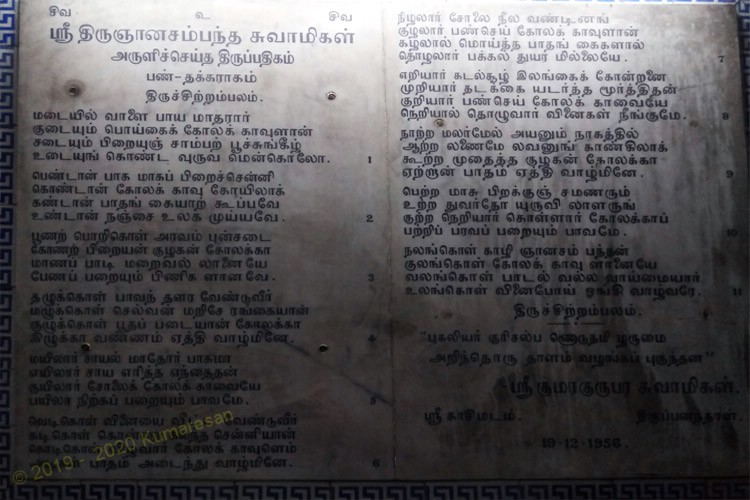 சிவ உ சிவ
ஸ்ரீ திருஞானசம்பந்த சுவாமிகள்
அருளிச்செய்த திருப்பதிகம்
பண்-தக்கராகம்
திருச்சிற்றம்பலம்.
மடையில் வாளை பாய மாதரார்
குடையும் பொய்கைக் கோலக் காவுளான்
சடையும் பிறையுஞ் சாம்பற் பூச்சுங்கீழ்
உடையுங் கொண்ட வுருவ மென்கொலோ. 1
பெண்டான் பாக மாகப் பிறைச்சென்னி
கொண்டான் கோலக் காவு கோயிலாக்
கண்டான் பாதங் கையாற் கூப்பவே
உண்டான் நஞ்சை உலக முய்யவே. 2
பூணற் பொறிகொள் அரவம் புன்சடை
கோணற் பிறையன் குழகன் கோலக்கா
மாணப் பாடி மறைவல் லானையே
பேணப் பறையும் பிணிக ளானவே. 3
தழுக்கொள் பாவந் தளர வேண்டுவீர்
மழுக்கொள் செல்வன் மறிசே ரங்கையான்
குழுக்கொள் பூதப் படையான் கோலக்கா
இழுக்கா வண்ணம் ஏத்தி வாழ்மினே. 4
மயிலார் சாயல் மாதோர் பாகமா
எயிலார் சாய எரித்த எந்தைதன்
குயிலார் சோலைக் கோலக் காவையே
பயிலா நிற்கப் பறையும் பாவமே. 5
வெடிகொள் வினையை வீட்ட வேண்டுவீர்
கடிகொள் கொன்றை கலந்த சென்னியான்
கோலக் காவுளெம்
பாதம் அடைந்து வாழ்மினே. 6
நிழலார் சோலை நீல வண்டினங்
குழலார் பண்செய் கோலக் காவுளான்
கழலால் மொய்த்த பாதங் கைகளால்
தொழலார் பக்கல் துயர மில்லையே. 7
எறியார் கடல்சூழ் இலங்கைக் கோன்றனை
முறியார் தடக்கை யடர்த்த மூர்த்திதன்
குறியார் பண்செய் கோலக் காவையே
நெறியால் தொழுவார் வினைகள் நீங்குமே. 8
நாற்ற மலர்மேல் அயனும் நாகத்தில்
ஆற்ற லணைமே லவனுங் காண்கிலாக்
கூற்ற முதைத்த குழகன் கோலக்கா
ஏற்றான் பாதம் ஏத்தி வாழ்மினே. 9
பெற்ற மாசு பிறக்குஞ் சமணரும்
உற்ற துவர்தோ யுருவி லாளருங்
குற்ற நெறியார் கொள்ளார் கோலக்காப்
பற்றிப் பரவப் பறையும் பாவமே. 10
நலங்கொள் காழி ஞானசம் பந்தன்
குலங்கொள் கோலக் காவு ளானையே
வலங்கொள் பாடல் வல்ல வாய்மையார்
உலங்கொள் வினைபோய் ஓங்கி வாழ்வரே. 11
திருச்சிற்றம்பலம்.
"புகலியர் குரிசில்ப ணொருதமி ழருமை
அறிந்தொரு தாளம் வழங்கப் புகுந்தன"
ஸ்ரீகுமரகுருபர சுவாமிகள்.
ஸ்ரீ காசிமடம். திருப்பனந்தாள்.
19-12-1956.
© 2019 - 2020 Kumarasan